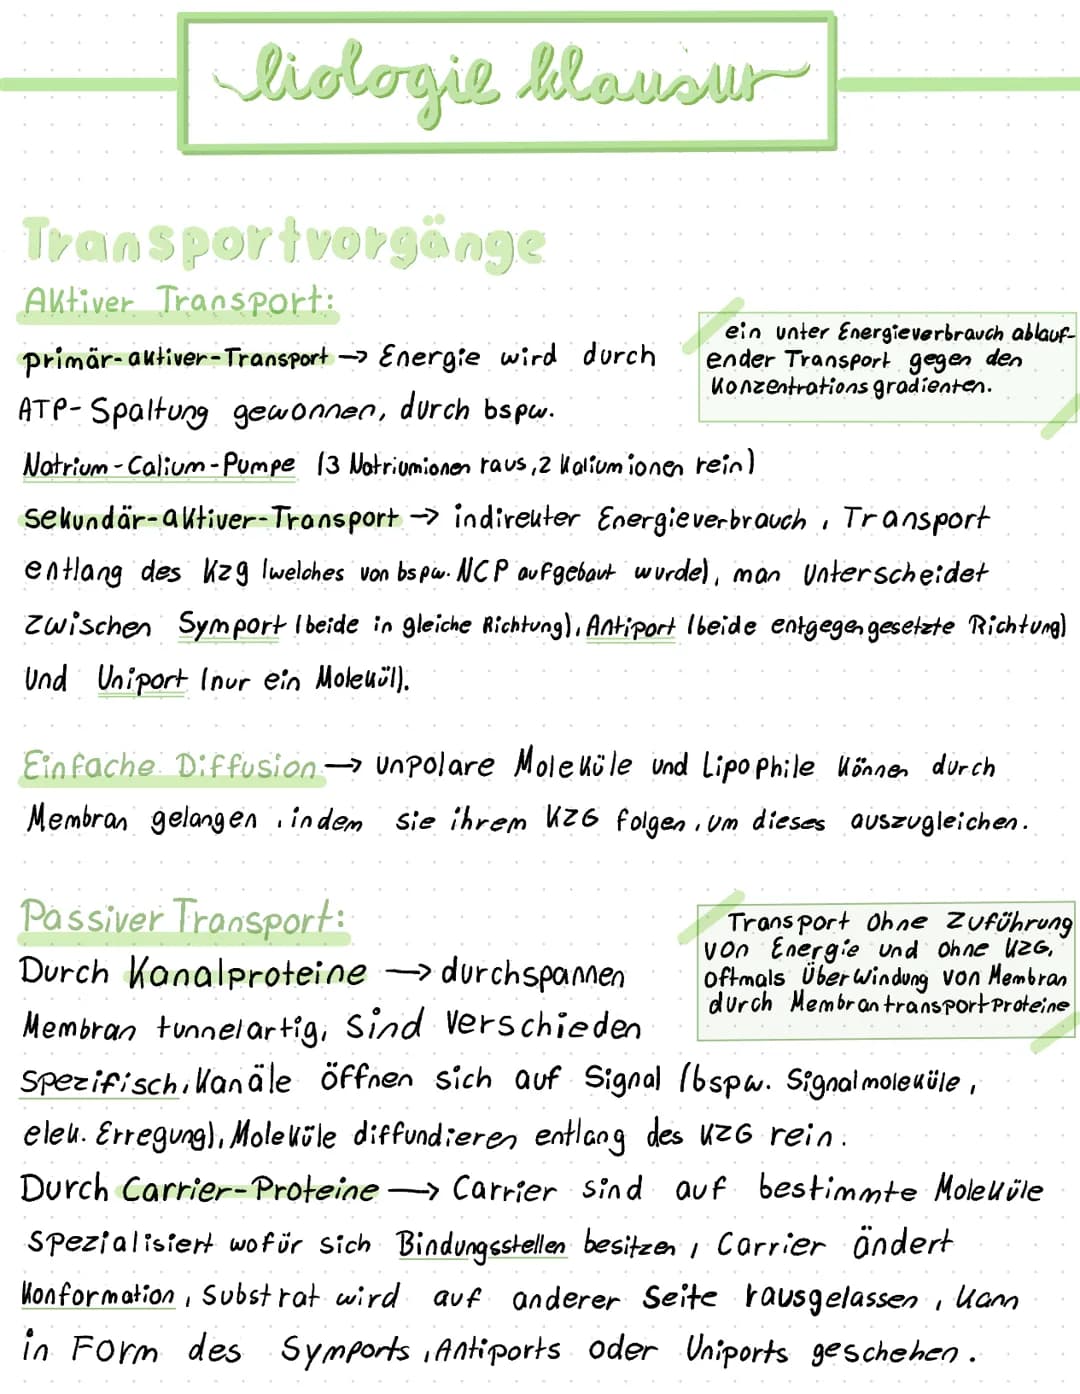 biologie klausur
Transportvorgänge
Aktiver Transport:
ein unter Energieverbrauch ablauf-
ender Transport gegen den
Konzentrationsgradienten.
primär-aktiver-Transport → Energie wird durch
ATP-Spaltung gewonnen, durch bspw.
Natrium-Calium-Pumpe (3 Natriumionen raus, 2 Kaliumionen rein)
Sekundär-aktiver-Transport → indirekter Energieverbrauch, Transport
entlang des Kzg (welches von bspw. NCP aufgebaut wurde), man Unterscheidet
zwischen Symport (beide in gleiche Richtung), Antiport (beide entgegengesetzte Richtung)
Und Uniport (nur ein Molekül).
Einfache Diffusion → unpolare Moleküle und Lipophile können durch
Membran gelangen, indem sie ihrem KZG folgen, um dieses auszugleichen.
Passiver Transport:
Transport Ohne Zuführung
von Energie und ohne KZG,
oftmals Überwindung von Membran
durch Membrantransportproteine
Durch Kanalproteine → durchspannen
Membran tunnelartig, sind verschieden
Spezifisch, Kanäle öffnen sich auf Signal (bspw. Signalmoleküle,
elek. Erregung), Moleküle diffundieren entlang des KZG rein.
Durch Carrier-Proteine → Carrier sind auf bestimmte Moleküle
Spezialisiert wofür sich Bindungsstellen besitzen, Carrier ändert
Konformation, Substrat wird auf anderer Seite rausgelassen, kann
in Form des Symports, Antiports oder Uniports geschehen.